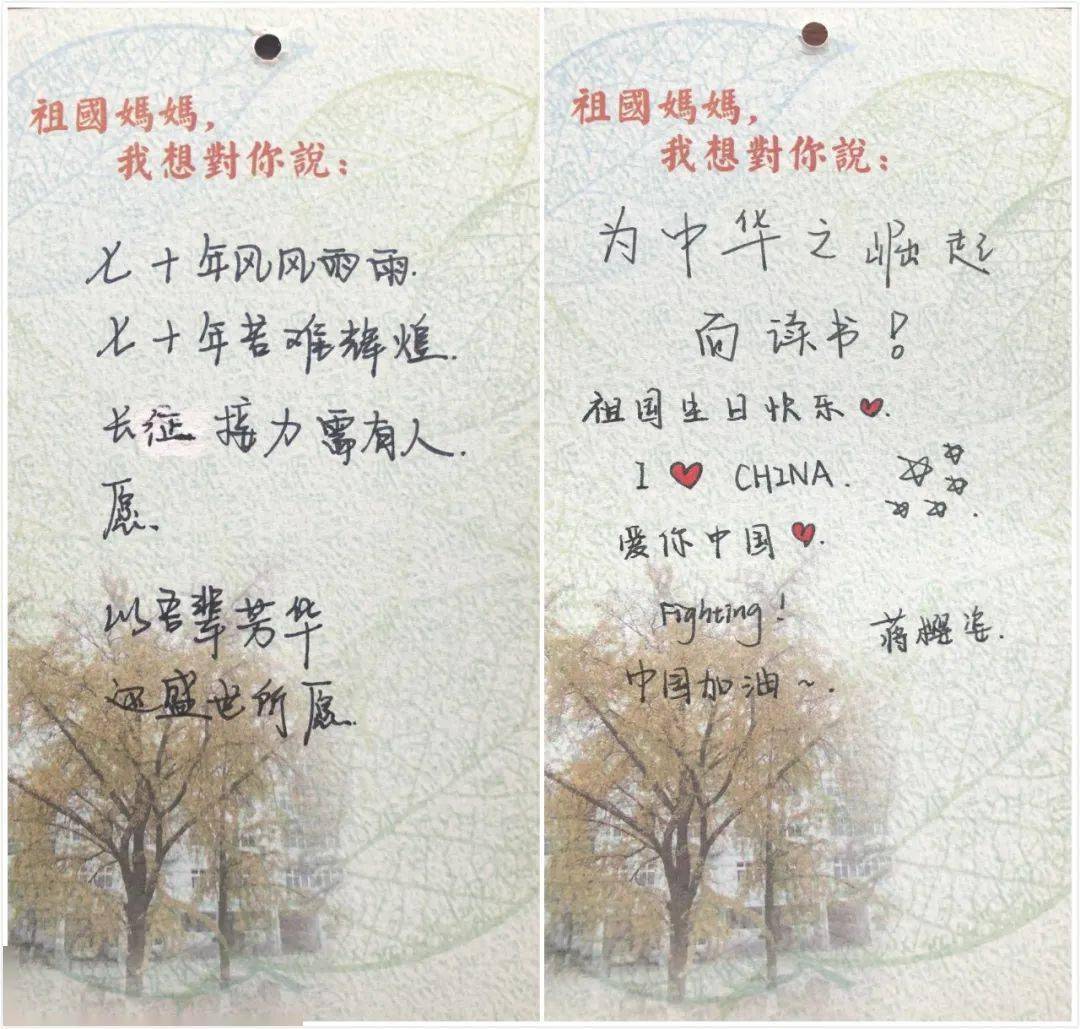 祖國媽媽，
我想對你說：
七十年风风雨雨.
七十年苦难辉煌.
长征 接力需有人.
愿.
以吾辈芳华
还盛世所愿.
祖國媽媽，
我想對你說：
为中华之崛起
而读书！
祖国生日快乐♥.
I ♥ CHINA.
爱你中国♥.
Fighting!
蒋樱姿.
中国加油～.